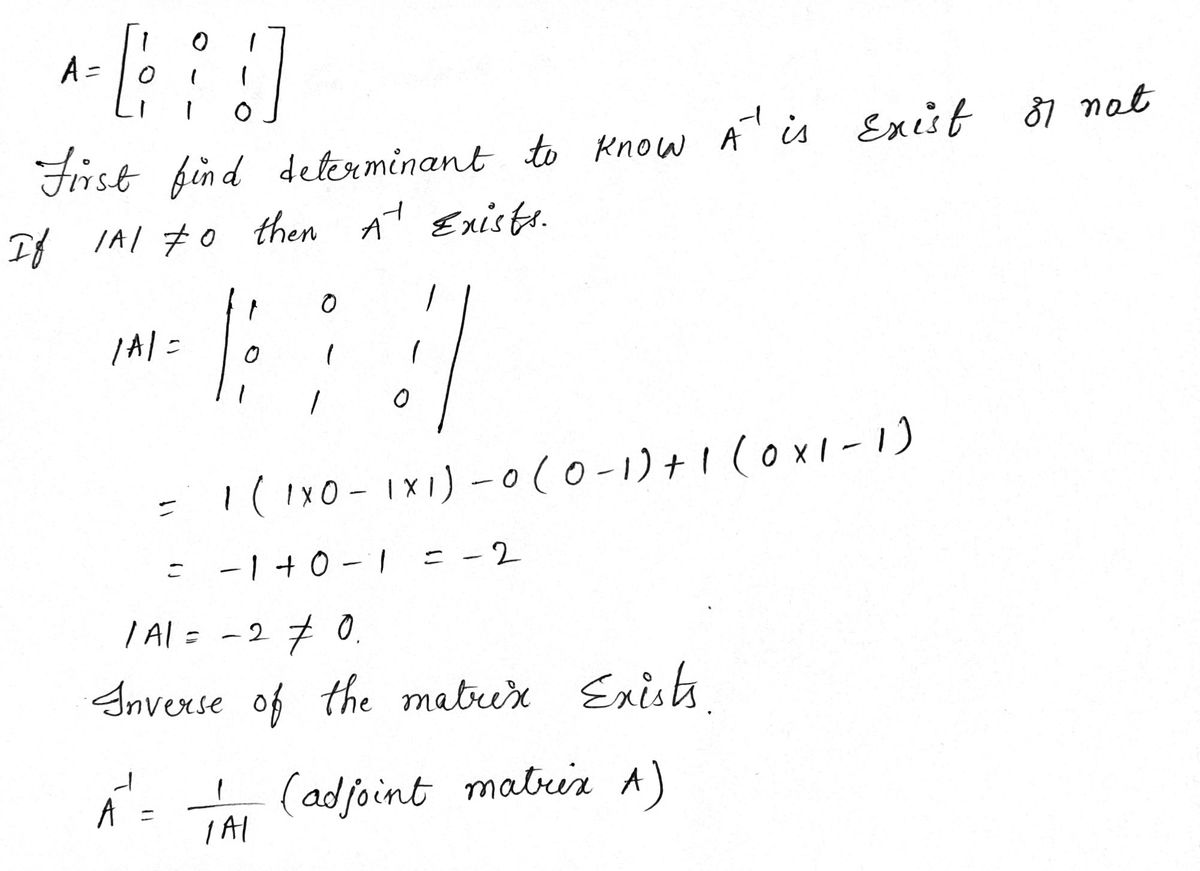 A = [1 0 1
0 1 1
1 1 0]
First find determinant to know A⁻¹ is Exist or not
If |A| ≠ 0 then A⁻¹ Exists.
|A| = |1 0 1
0 1 1
1 1 0|
= 1 ( 1x0 - 1x1) - 0 ( 0 - 1) + 1 ( 0x1 - 1)
= -1 + 0 - 1 = -2
|A| = -2 ≠ 0.
Inverse of the matrix Exists.
A⁻¹ = 1/|A| (adjoint matrix A)